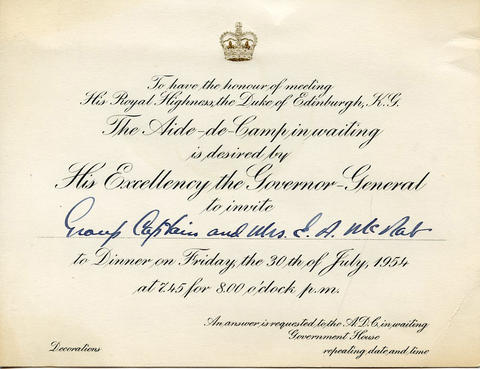 To have the honour of meeting
His Royal Highness, the Duke of Edinburgh, K.G.
The Aide-de-Camp in waiting
is desired by
His Excellency the Governor-General
to invite
Group Captain and Mrs. E. A. McNab
to Dinner, on Friday, the 30th of July, 1954
at 7.45 for 8.00 o'clock p.m.
An answer is requested to the A.D.C. in waiting
Government House
Decorations
repeating date and time